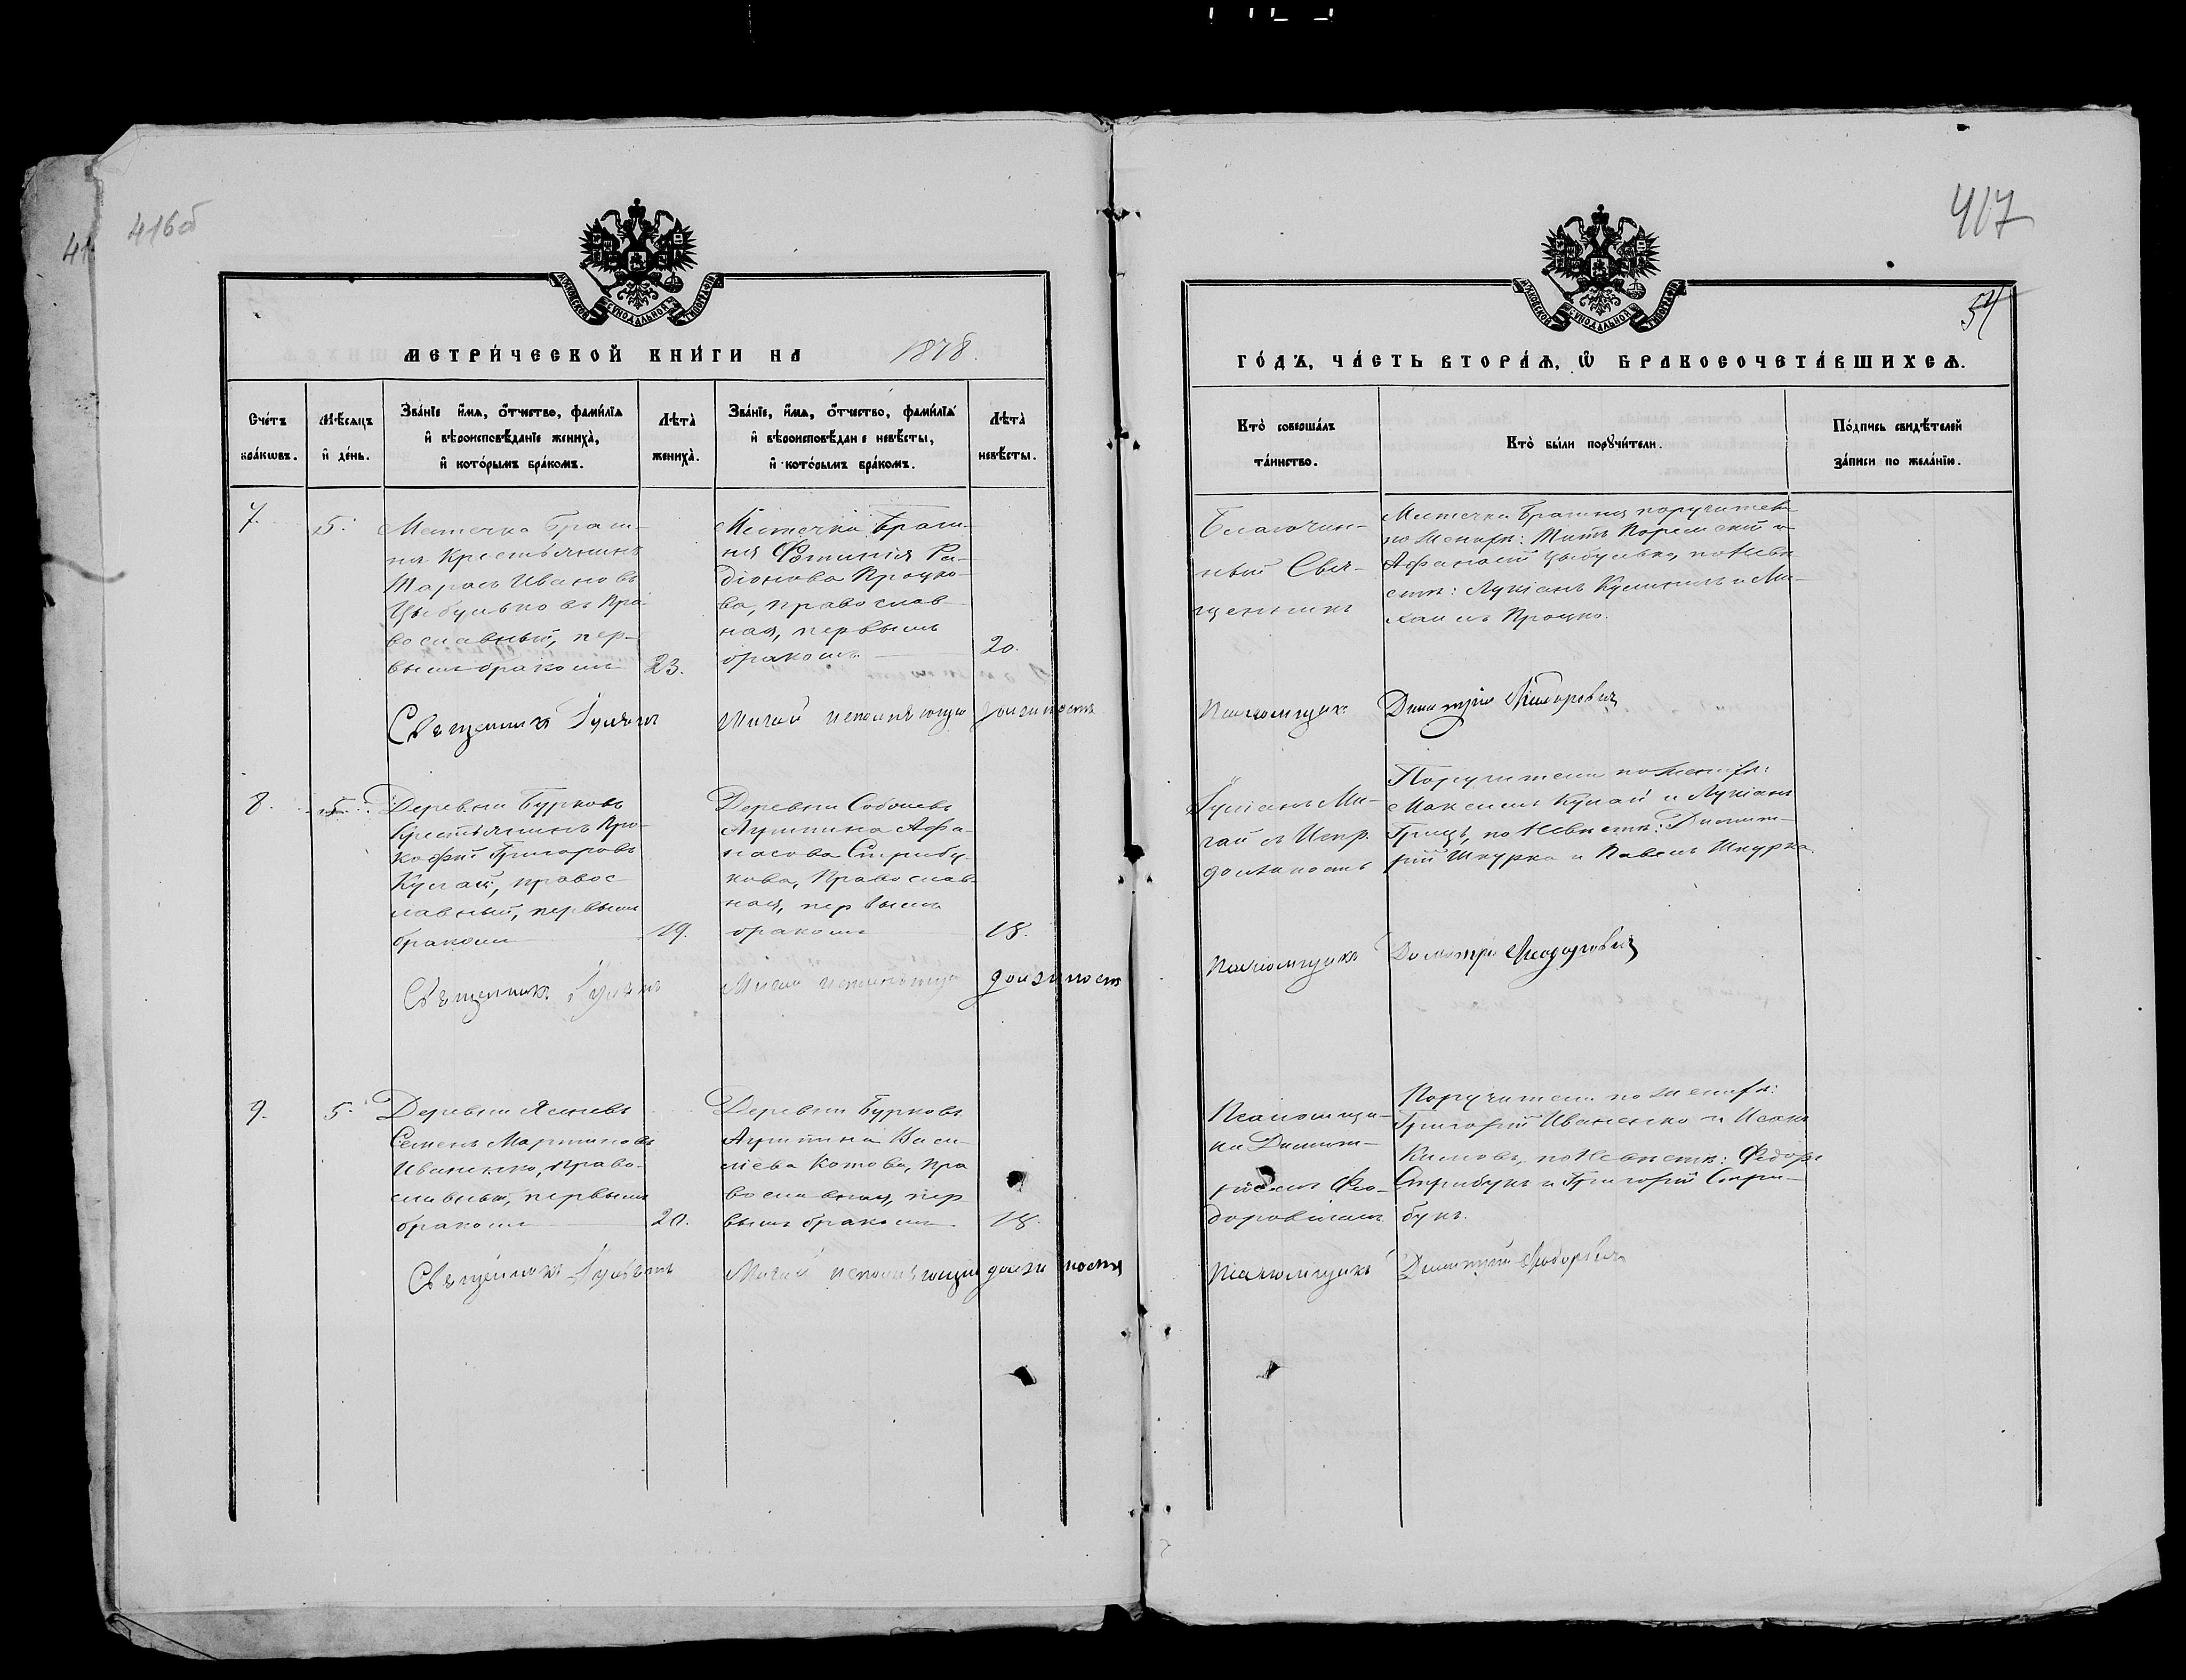 416об
417
54
МОСКОВСКОЙ СУНОДАЛЬНОЙ ТИПОГРАФІИ
МЕТРИ́ЧЕСКОЙ КНИ́ГИ НА 1878.
Сче́тъ
бра́кωвъ.
Мѣ́сѧцъ
и҆ де́нь.
Зва́нїе и҆́мѧ, ѻ҆́тчество, фами́лїѧ
и҆ вѣроисповѣ́данїе жениха̀,
и҆ кото́рымъ бра́комъ.
Лѣта̀
жениха̀.
Зва́нїе, и҆́мѧ, ѻ҆́тчество, фами́лїѧ
и҆ вѣроисповѣ́данїе невѣ́сты,
и҆ кото́рымъ бра́комъ.
Лѣта̀
невѣ́сты.
7.
5.
Местечка Браги-
на Крестьянинъ
Тарасъ Ивановъ
Цыбулько въ Пра-
вославный, пер-
вымъ бракомъ
23.
Местечка Браги-
на Фотинія Ра-
діонова Процко-
ва, православ-
ная, первымъ
бракомъ
20.
Священникъ Іуліанъ Мигай исполняющій должность
8.
5.
Деревни Бурковъ
Крестьянинъ Про-
кофій Григоровъ
Кулай, правос-
лавный, первымъ
бракомъ
19.
Деревни Соболевъ
Агрипина Афа-
насова Стрибу-
кова, Православ-
ная, первымъ
бракомъ
18.
Священникъ Іуліанъ Мигай исполняющій должность
9.
5.
Деревни Ясеневъ
Семенъ Мартиновъ
Иваненко, Право-
славный, первымъ
бракомъ
20.
Деревни Бурковъ
Агрипина Васи-
ліева Котова, пра
вославная, пер
вымъ бракомъ
18.
Священникъ Іуліанъ Мигай исполняющій должность
ГО́ДЪ, ЧА́СТЬ ВТОРА́Ѧ, Ѡ҆ БРАКОСОЧЕТА́ВШИХСѦ.
Кто̀ соверша́лъ
та́инство.
Кто̀ бы́ли порꙋчи́тели.
По́дпись свидѣ́телей
за́писи по жела́нїю.
Благочин-
ный Свя-
щенникъ
Местечка Брагина поручители
по Женихѣ: Титъ и
Афанасій Цыбулько, по Невѣ
стѣ: Лукіанъ и Ми-
хаилъ Процко.
Псаломщикъ Димитрій Феодоровичъ
Іуліанъ Ми-
гай съ Испр.
должность
Поручители по женихѣ:
Максимъ Кулай и Лукіанъ
Грицъ, по Невѣстѣ: Димит-
рій Шкурко и Павелъ Шкурко.
Псаломщикъ Димитрій Феодоровичъ
Псаломщи-
ки Димит-
ріемъ Фео-
доровичемъ
Поручители по женихѣ:
Григорій Иваненко и Исакъ
Климовъ, по Невѣстѣ: Федоръ
Стрибукъ и Григорій Стри-
букъ.
Псаломщикъ Димитрій Феодоровичъ